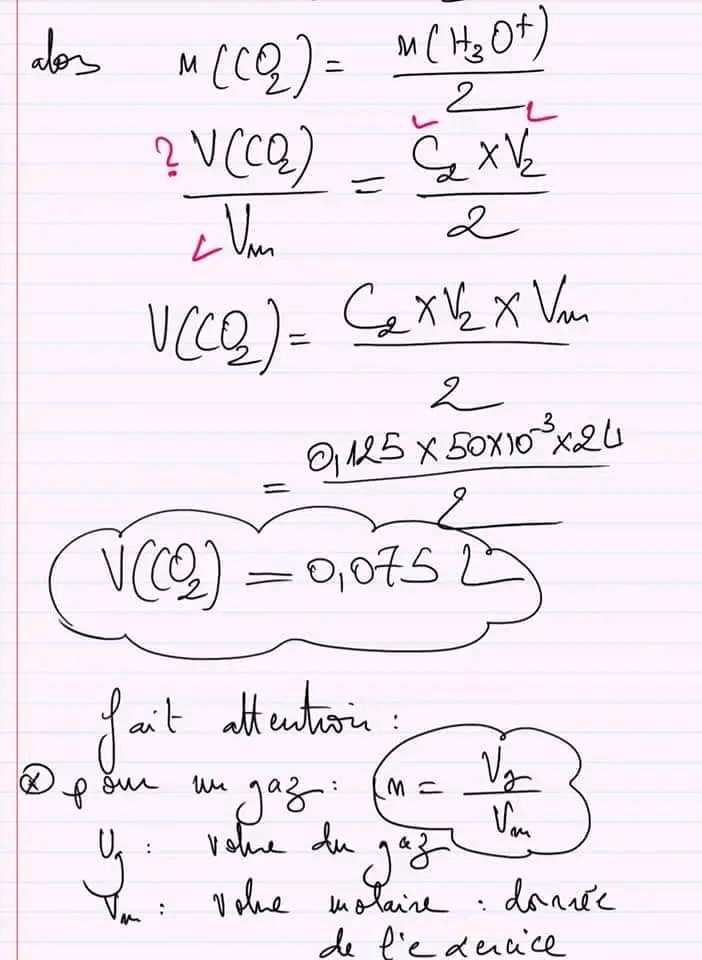 alors n(CO₂) = n(H₃O⁺)/2
? V(CO₂)/Vm = C₂ × V₂/2
V(CO₂) = C₂ × V₂ × Vm/2
= 0,125 × 50×10⁻³ × 24/2
V(CO₂) = 0,075 L
fait attention :
pour un gaz : n = Vg/Vm
Vg : volume du gaz
Vm : volume molaire : donnée
de l'exercice